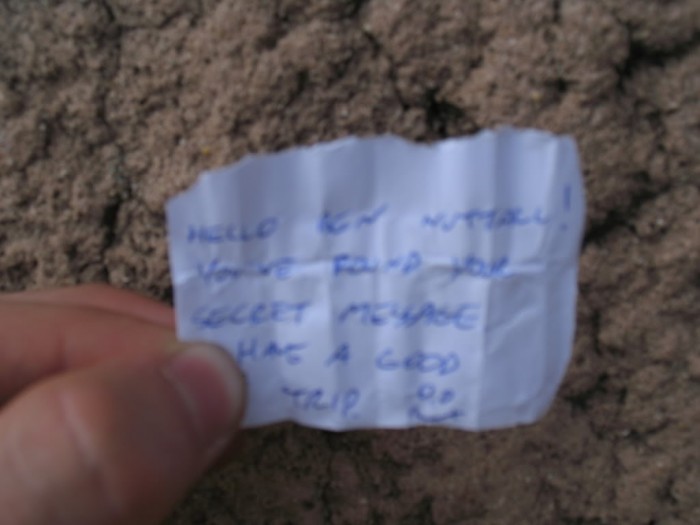 HELLO BEN NUTTALL!
YOU'VE FOUND YOUR
SECRET MESSAGE
HAVE A GOOD
TRIP